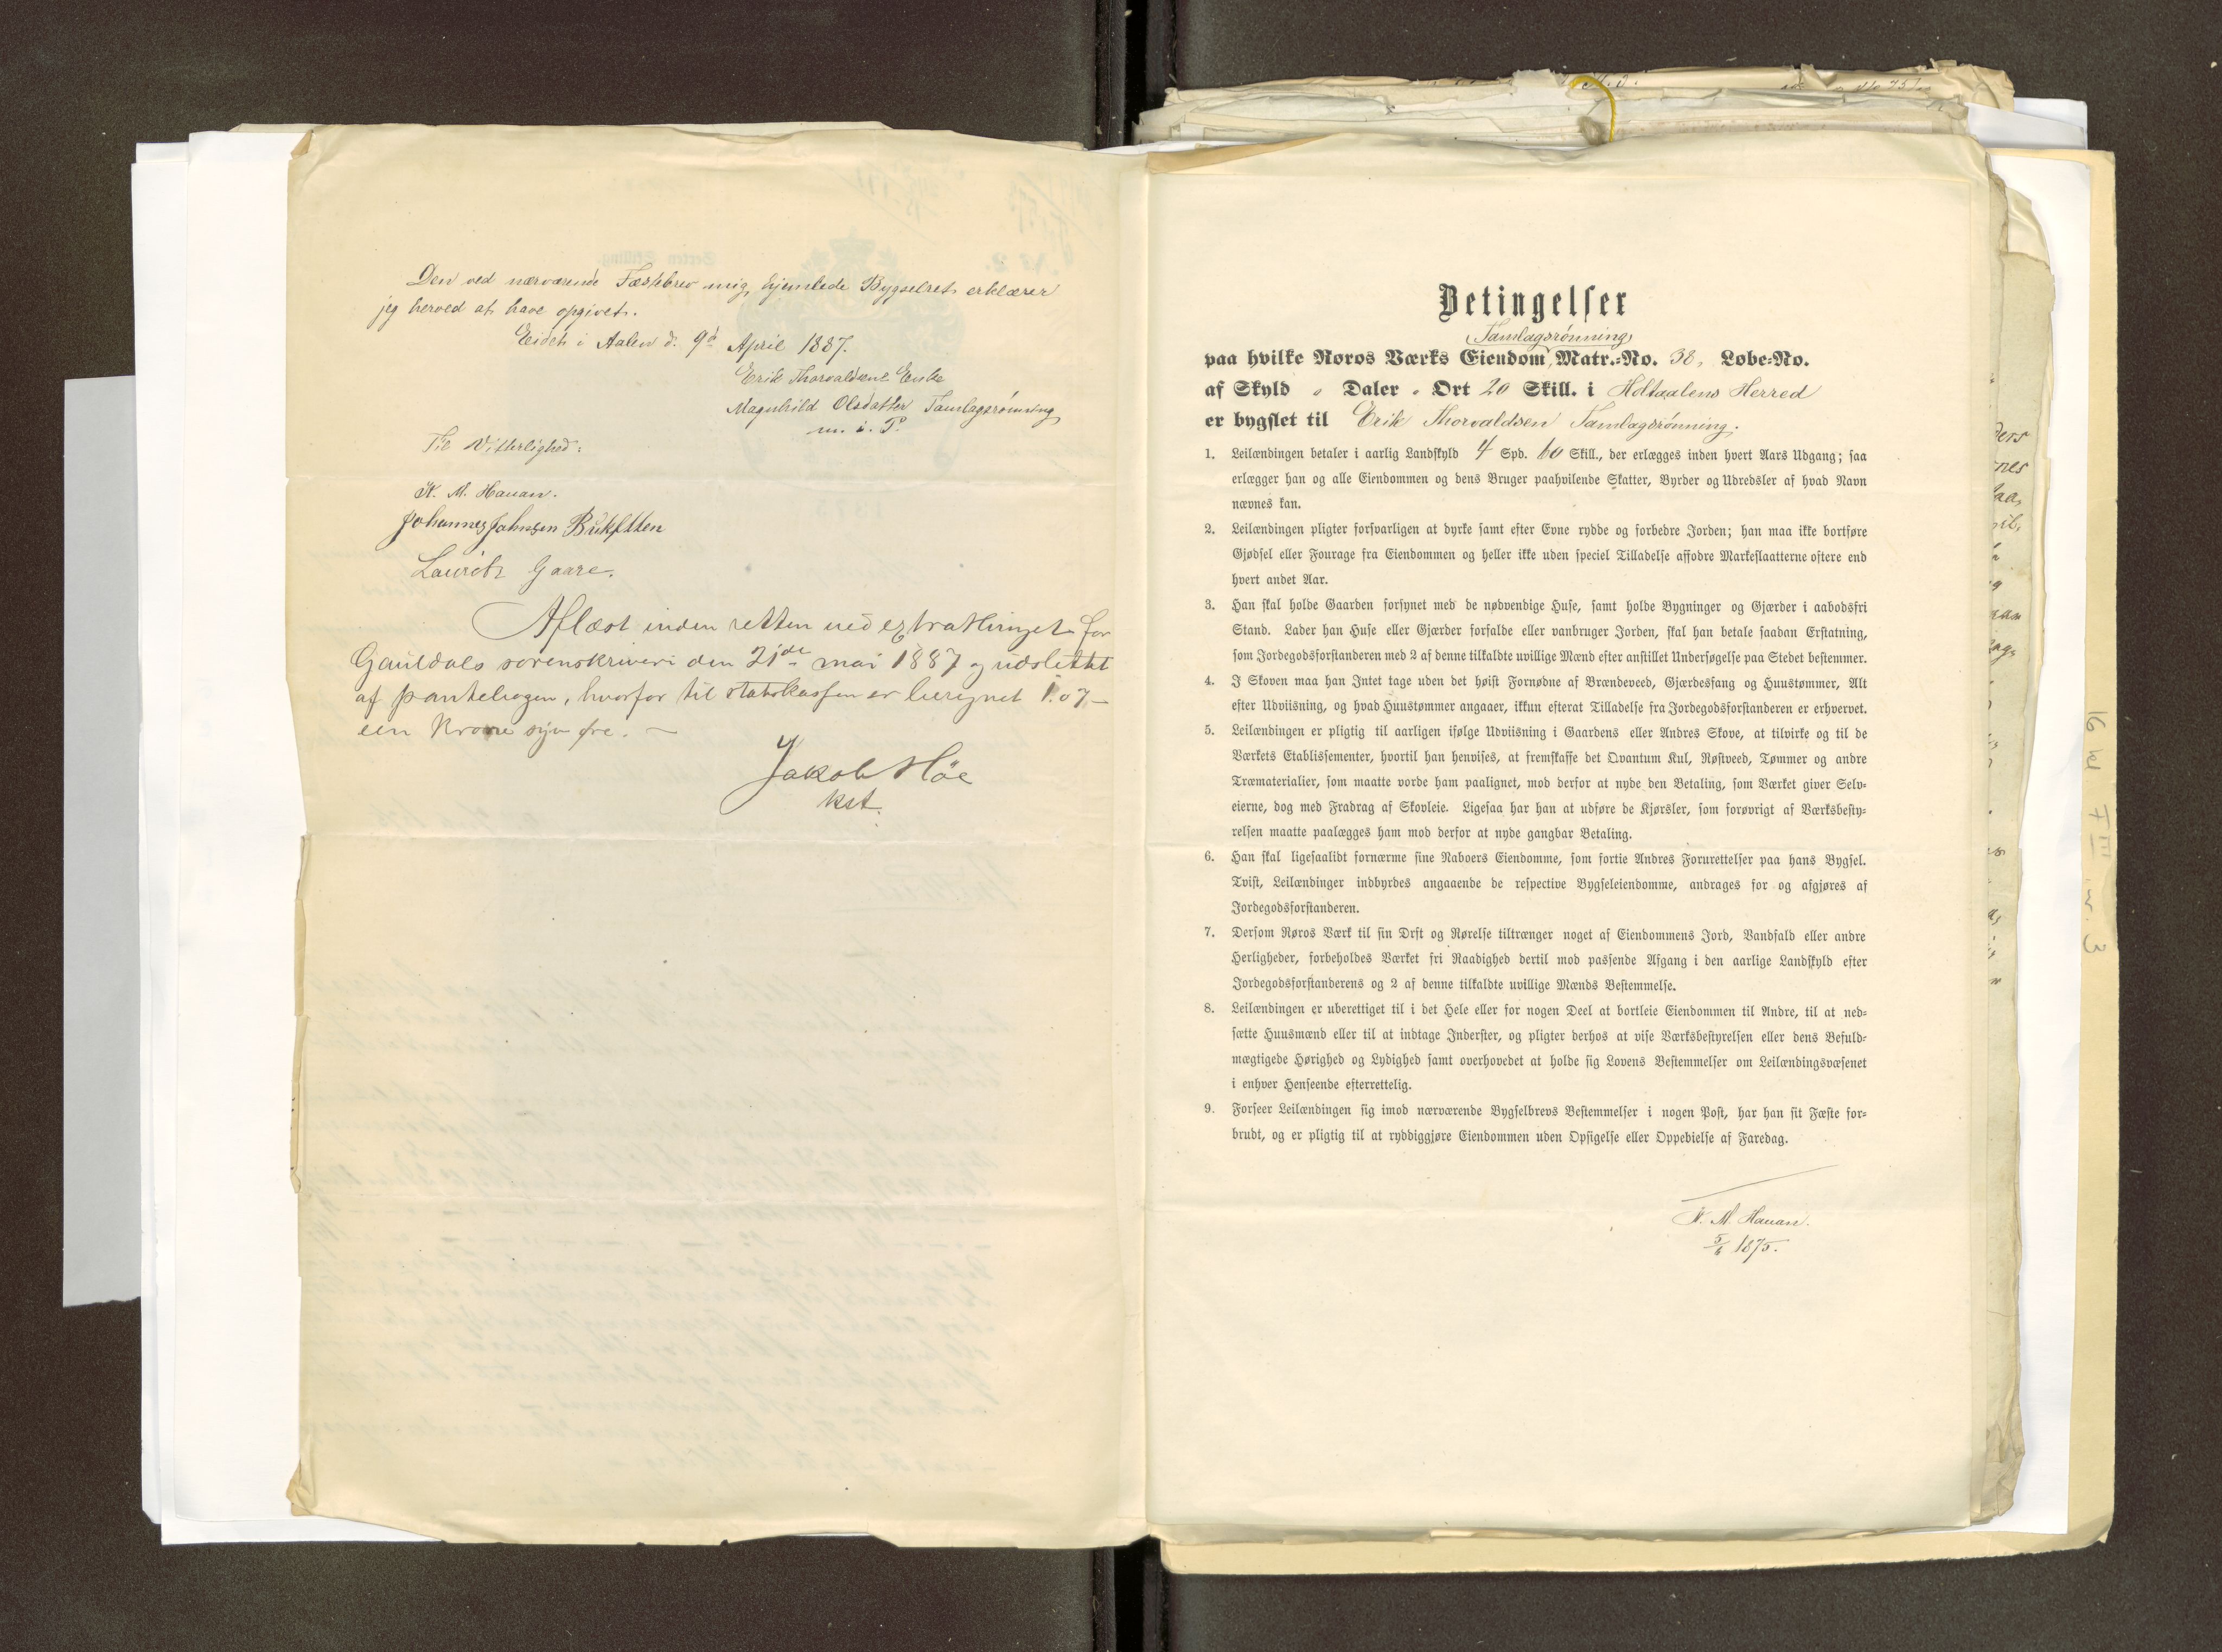 Den ved nærværende Fæstebrev mig hjemlede Bygselret erklærer
jeg herved at have opgivet.
Eidet i Aalen d. 9d April 1887.
Erik Thorvaldsens Enke
Magnhild Olsdatter Tamlagsrønning
m. i. P.
Til Vitterlighed:
K. M. Hauan.
Johannes Jahnsen
Lauritz Gaare.
Aflæst inden retten ved extrathinget for
Gauldals sorenskriveri den 21de mai 1887 og udslettet
af pantebogen, hvorfor til statskassen er beregnet 1.07 –
een Krone syv øre. –
Jakob Höe
kst.
Betingelser
Tamlagsrønning
paa hvilke Røros Værks Eiendom, Matr.-No. 38, Løbe-No.
af Skyld " Daler " Ort 20 Skill. i Holtaalens Herred
er bygslet til Erik Thorvaldsen Tamlagsrønning.
1. Leilændingen betaler i aarlig Landskyld 4 Spd. 60 Skill., der erlægges inden hvert Aars Udgang; saa
erlægger han og alle Eiendommen og dens Bruger paahvilende Skatter, Byrder og Udredsler af hvad Navn
nævnes kan.
2. Leilændingen pligter forsvarligen at dyrke samt efter Evne rydde og forbedre Jorden; han maa ikke bortføre
Gjødsel eller Fourage fra Eiendommen og heller ikke uden speciel Tilladelse affodre Markeslaatterne oftere end
hvert andet Aar.
3. Han skal holde Gaarden forsynet med de nødvendige Huse, samt holde Bygninger og Gjærder i aabodsfri
Stand. Lader han Huse eller Gjærder forfalde eller vanbruger Jorden, skal han betale saadan Erstatning,
som Jordegodsforstanderen med 2 af denne tilkaldte uvillige Mænd efter anstillet Undersøgelse paa Stedet bestemmer.
4. I Skoven maa han Intet tage uden det høist Fornødne af Brændeveed, Gjærdesfang og Huustømmer, Alt
efter Udviisning, og hvad Huustømmer angaaer, ikkun efterat Tilladelse fra Jordegodsforstanderen er erhvervet.
5. Leilændingen er pligtig til aarligen ifølge Udviisning i Gaardens eller Andres Skove, at tilvirke og til de
Værkets Etablissementer, hvortil han henvises, at fremskaffe det Qvantum Kul, Røstveed, Tømmer og andre
Træmaterialier, som maatte vorde ham paalignet, mod derfor at nyde den Betaling, som Værket giver Selv-
eierne, dog med Fradrag af Skovleie. Ligesaa har han at udføre de Kjørsler, som forøvrigt af Værksbesty-
relsen maatte paalægges ham mod derfor at nyde gangbar Betaling.
6. Han skal ligesaalidt fornærme sine Naboers Eiendomme, som fortie Andres Forurettelser paa hans Bygsel.
Tvist, Leilændinger indbyrdes angaaende de respective Bygseleiendomme, andrages for og afgjøres af
Jordegodsforstanderen.
7. Dersom Røros Værk til sin Drft og Nørelse tiltrænger noget af Eiendommens Jord, Vandfald eller andre
Herligheder, forbeholdes Værket fri Raadighed dertil mod passende Afgang i den aarlige Landskyld efter
Jordegodsforstanderens og 2 af denne tilkaldte uvillige Mænds Bestemmelse.
8. Leilændingen er uberettiget til i det Hele eller for nogen Deel at bortleie Eiendommen til Andre, til at ned-
sætte Huusmænd eller til at indtage Inderster, og pligter derhos at vise Værksbestyrelsen eller dens Befuld-
mægtigede Hørighed og Lydighed samt overhovedet at holde sig Lovens Bestemmelser om Leilændingsvæsenet
i enhver Henseende efterrettelig.
9. Forseer Leilændingen sig imod nærværende Bygselbrevs Bestemmelser i nogen Post, har han sit Fæste for-
brudt, og er pligtig til at ryddiggjøre Eiendommen uden Opsigelse eller Oppebielse af Faredag.
K. M. Hauan.
5/6 1875.